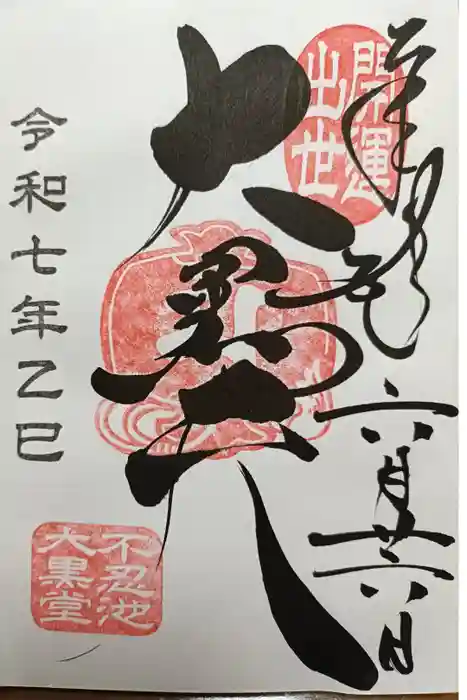 奉拝
六月廿六日
開運
出世
大黒天
令和七年乙巳
不忍池
大黒堂